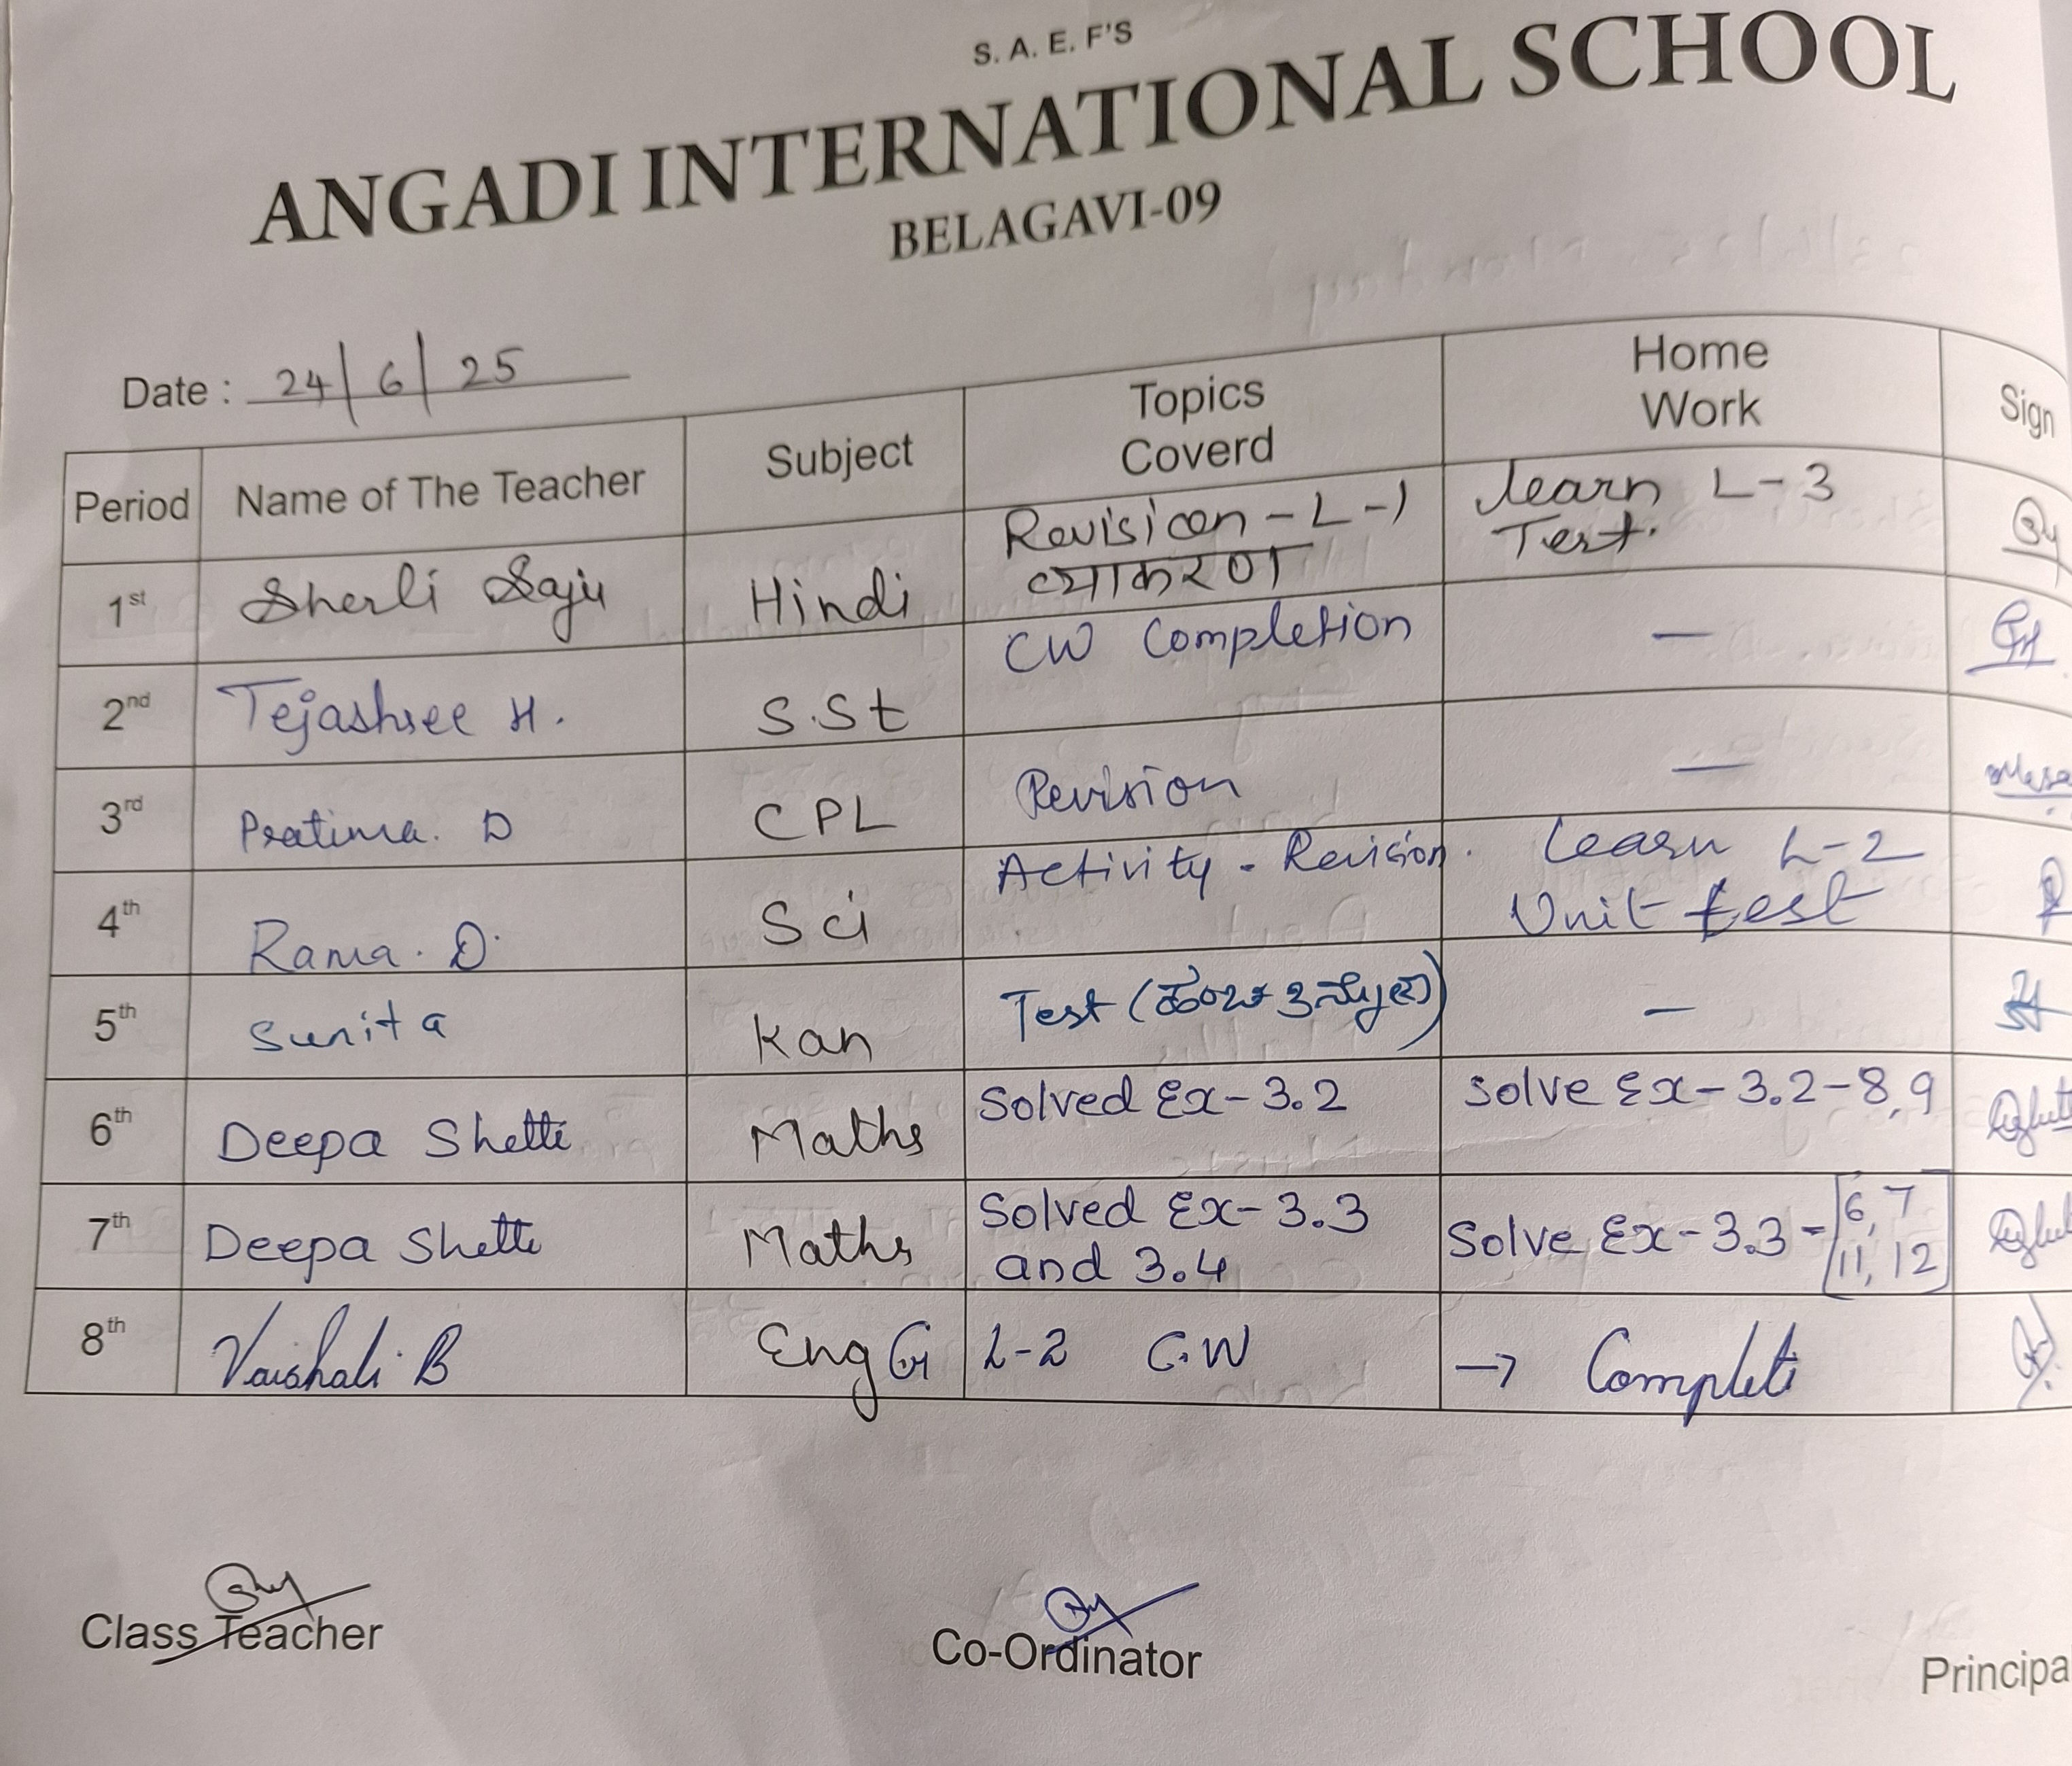 S. A. E. F'S
ANGADI INTERNATIONAL SCHOOL
BELAGAVI-09
Date : 24/6/25
Period Name of The Teacher Subject Topics Coverd Home Work Sign
1st Sherli Saju Hindi Revision - L-1 व्याकरण learn L-3 Test.
2nd Tejashree H. S.St CW Completion —
3rd Pratima. D CPL Revision —
4th Rama. D Sci Activity - Revision. Learn L-2 Unit test
5th Sunita Kan Test ( ) —
6th Deepa Shetti Maths Solved Ex-3.2 Solve Ex-3.2-8,9
7th Deepa Shetti Maths Solved Ex-3.3 and 3.4 Solve Ex-3.3-[6,7 11, 12]
8th Vaishali B Eng G L-2 C.W → Complete
Class Teacher Co-Ordinator Principa